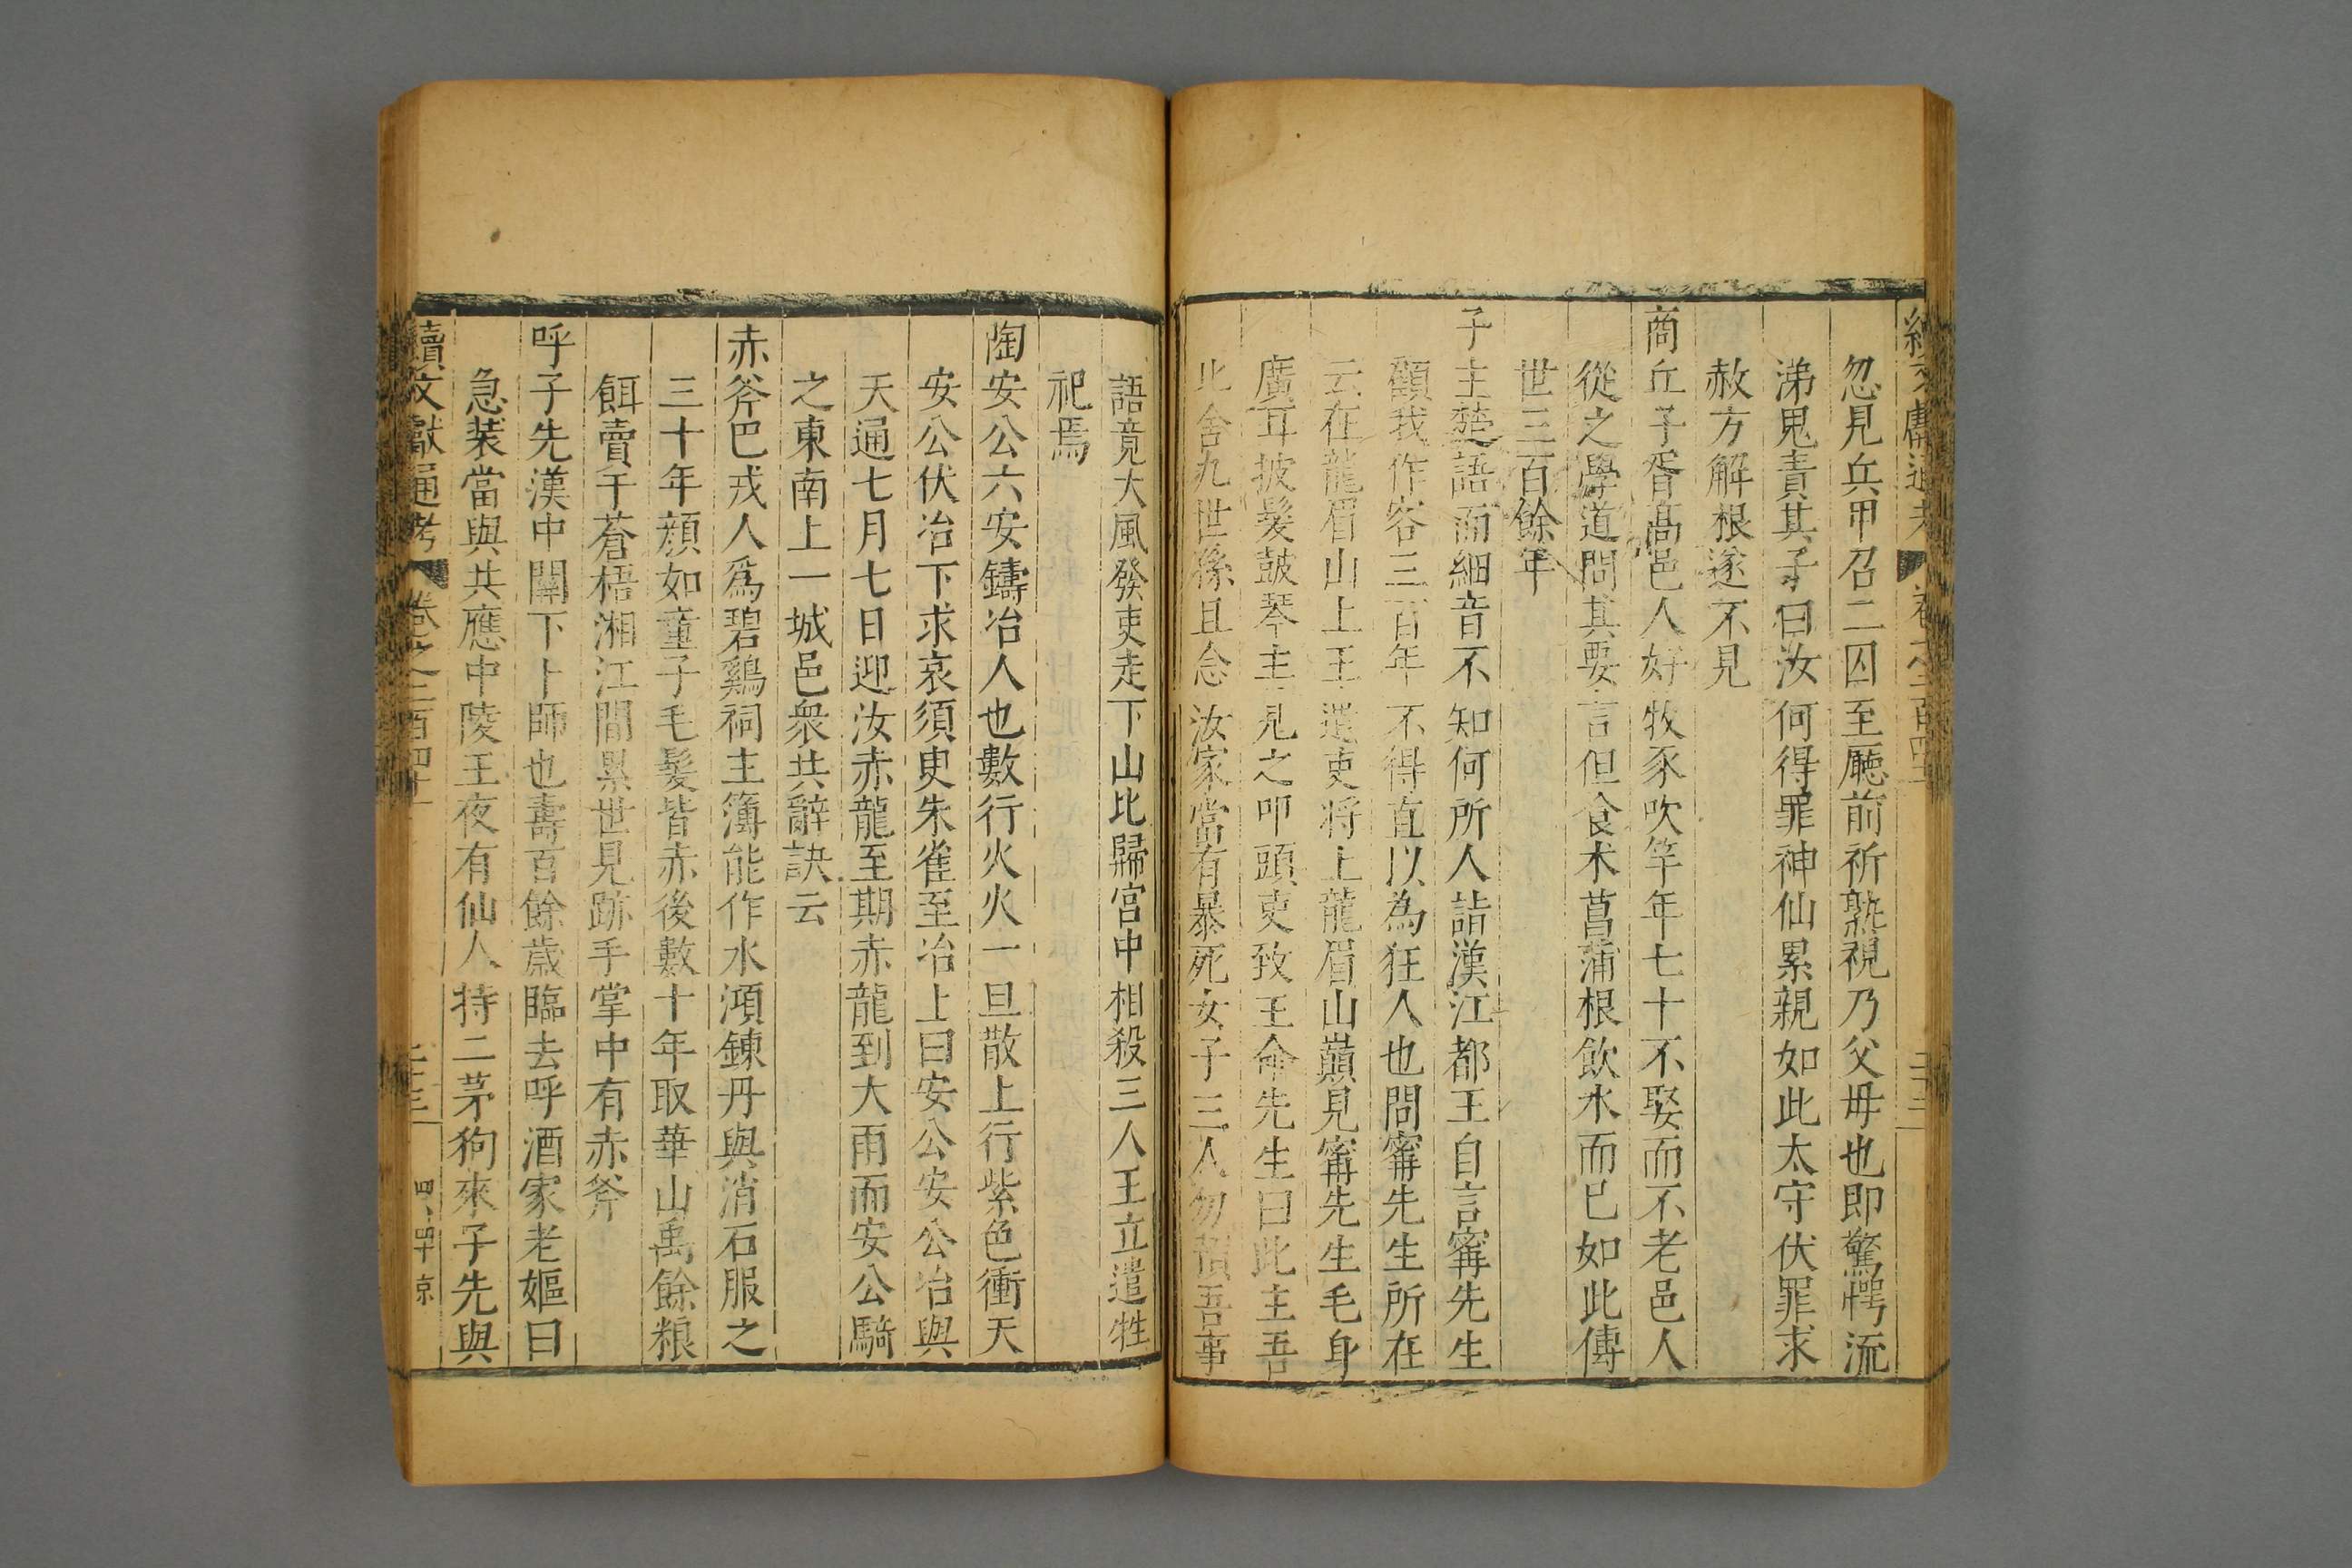 忽見兵甲召二囚至廳前祈熟視乃父毋也即驚愕流
涕鬼責其子曰汝何得罪神仙累親如此太守伏罪求
赦方解根遂不見
商丘子胥高邑人好牧豕吹竽年七十不娶而不老邑人
從之學道問其要言但食术菖蒲根飲水而已如此傳
世三百餘年
子主楚語而細音不知何所人詣漢江都王自言甯先生
顧我作客三百年不得直以為狂人也問甯先生所在
云在龍眉山上王遣吏將上龍眉山巔見甯先生毛身
廣耳披髮鼓琴主見之叩頭吏致王命先生曰此主吾
比舍九世孫且念汝家當有暴死女子三人勿預吾事
語竟大風發吏走下山比歸宮中相殺三人王立遣牲
祀焉
陶安公六安鑄冶人也數行火火一旦散上行紫色衝天
安公伏冶下求哀須臾朱雀至冶上曰安公安公冶與
天通七月七日迎汝赤龍至期赤龍到大雨而安公騎
之東南上一城邑衆共辭訣云
赤斧巴戎人爲碧鷄祠主簿能作水澒鍊丹與消石服之
三十年顏如童子毛髮皆赤後數十年取華山禹餘粮
餌賣于蒼梧湘江間累世見跡手掌中有赤斧
呼子先漢中關下卜師也壽百餘歲臨去呼酒家老嫗曰
急裝當與共應中陵王夜有仙人持二茅狗來子先與
續文獻通考 卷之二百四十 二十三